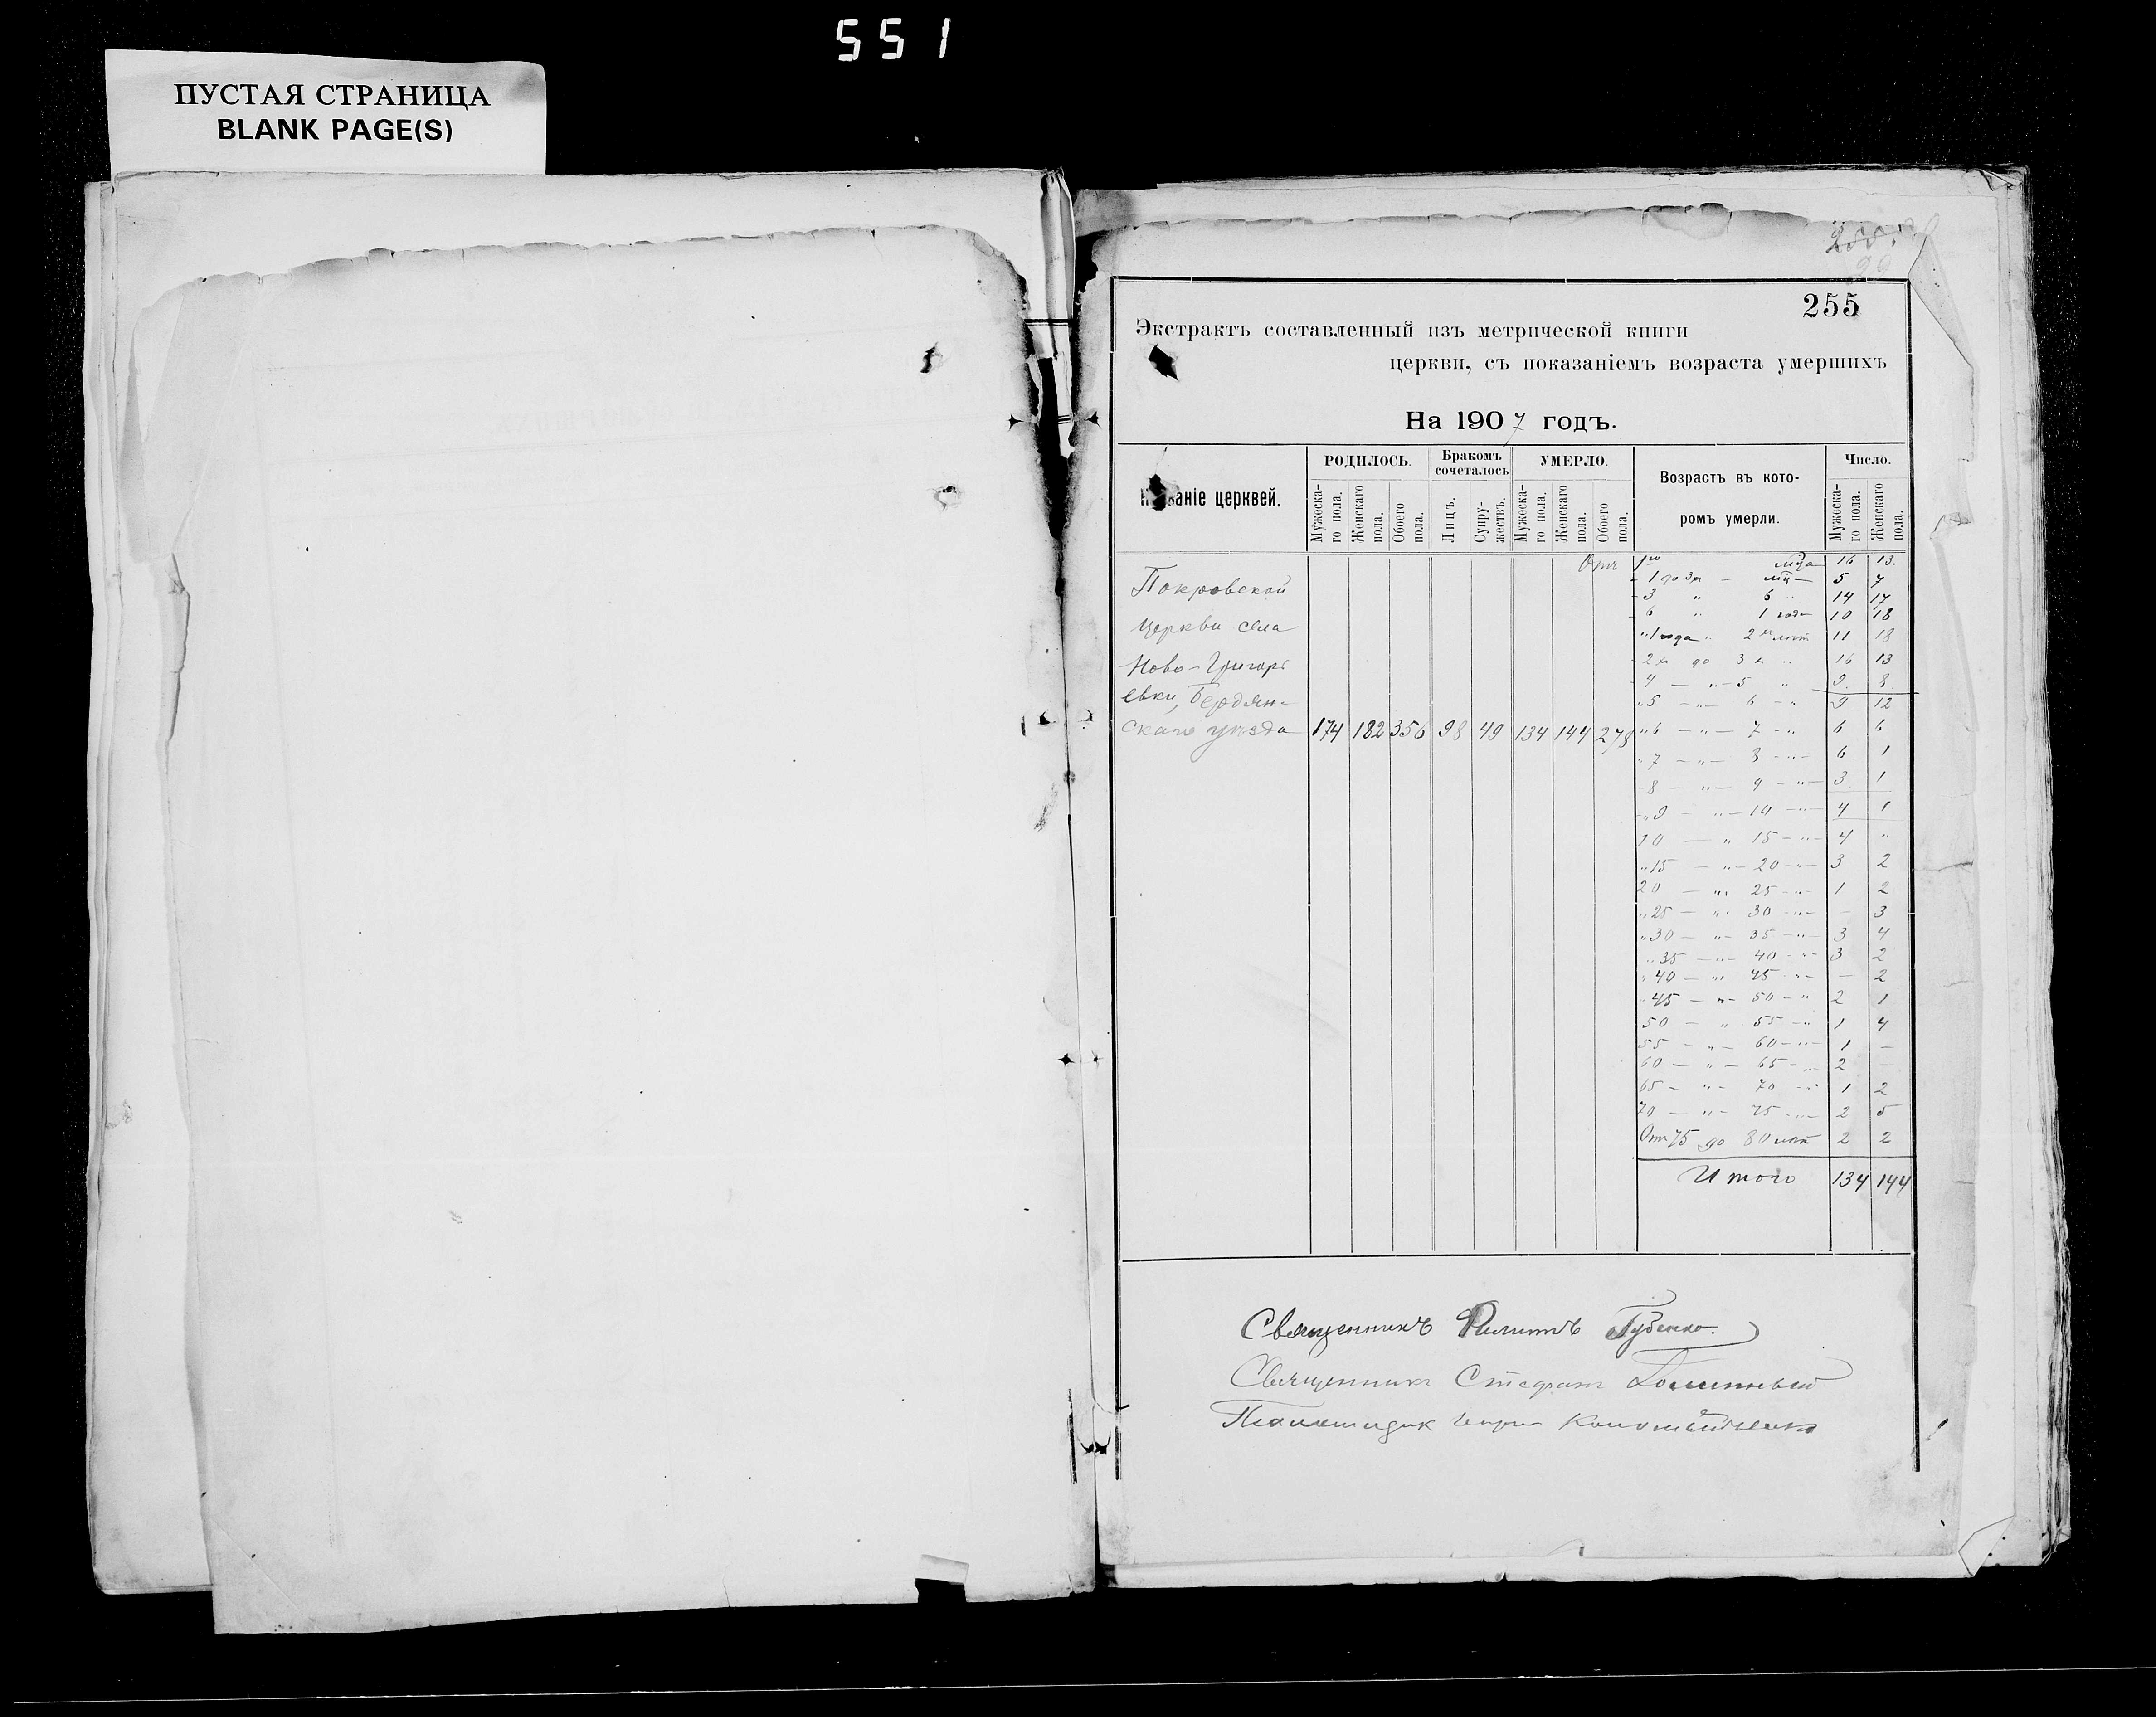 551
ПУСТАЯ СТРАНИЦА
BLANK PAGE(S)
255
Экстрактъ составленный изъ метрической книги
церкви, съ показаніемъ возраста умершихъ
На 1907 годъ.
Названіе церквей.
РОДИЛОСЬ.
Мужеска-го пола.
Женскаго пола.
Обоего пола.
Бракомъ сочеталось
Лицъ.
Супру-жествъ.
УМЕРЛО.
Мужеска-го пола.
Женскаго пола.
Обоего пола.
Возрастъ въ кото-
ромъ умерли.
Число.
Мужеска-го пола.
Женскаго пола.
Покровской
церкви села
Ново-Григорь
евки, Бердян-
скаго уѣзда 174 182 356 98 49 134 144 278
Отъ 1го мца 16 13.
- 1 до 3х - мц- 5 7
- 3 " 6 " 14 17
- 6 " 1 года 10 18
" 1 года " 2хъ лѣт 11 18
- 2х до 3х " 16 13
- 4 - " - 5 " 9. 8.
" 5 - " - 6 - " 9 12
" 6 - " - 7 - " 6 6
" 7 - " - 8 - " - 6 1
- 8 - " - 9 - " - 3 1
- " 9 - " - 10 - " - 4 1
10 - " 15 - " - 4 "
" 15 - " - 20 - " - 3 2
20 - " 25 - " - 1 2
" 25 - " 30 - " - - 3
" 30 - " - 35 - " - 3 4
" 35 - " - 40 - " - 3 2
" 40 - " 45 - " - - 2
" 45 - " - 50 - " 2 1
50 - " 55 - " 1 4
55 - " - 60 - " - 1 -
60 - " - 65 - " 2 -
65 - " - 70 - " 1 2
70 - " - 75 - " - 2 5
От 75 до 80 лѣт 2 2
Итого 134 144
Священникъ Филиппъ Губенко.
Священникъ Стефанъ
Псаломщик